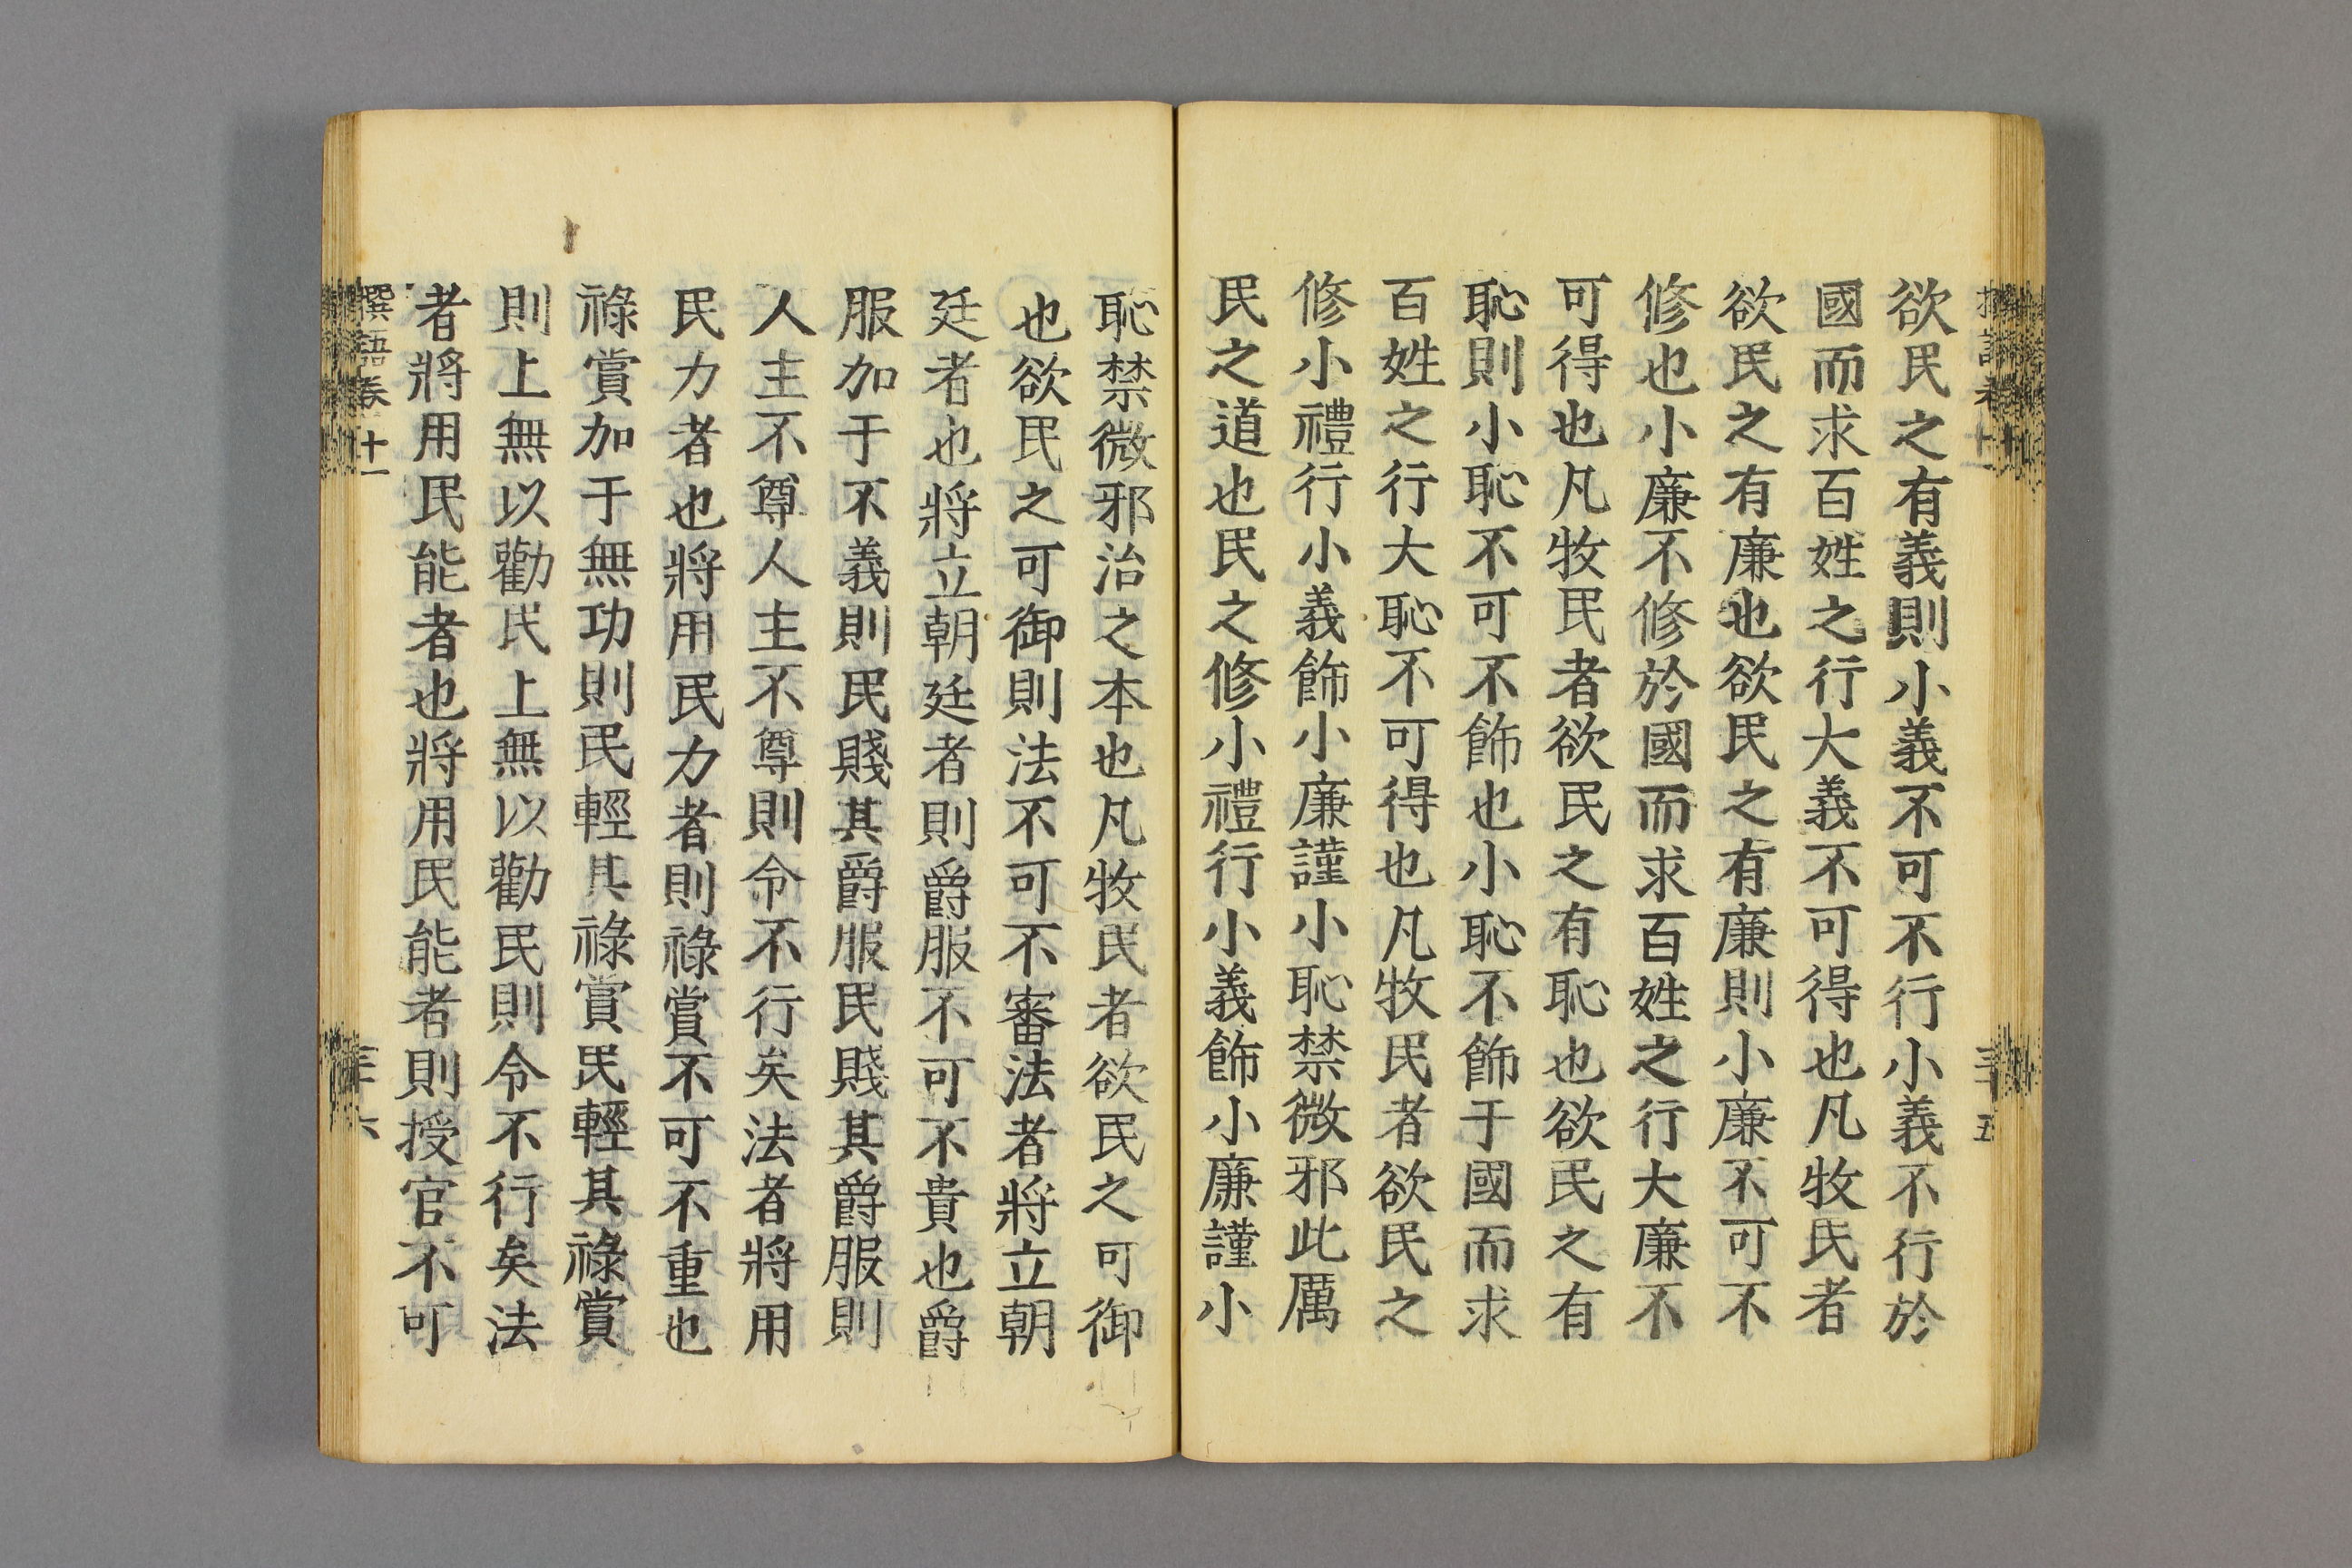 欲民之有義則小義不可不行小義不行於
國而求百姓之行大義不可得也凡牧民者
欲民之有廉也欲民之有廉則小廉不可不
修也小廉不修於國而求百姓之行大廉不
可得也凡牧民者欲民之有恥也欲民之有
恥則小恥不可不飾也小恥不飾于國而求
百姓之行大恥不可得也凡牧民者欲民之
修小禮行小義飾小廉謹小恥禁微邪此厲
民之道也民之修小禮行小義飾小廉謹小
恥禁微邪治之本也凡牧民者欲民之可御
也欲民之可御則法不可不審法者將立朝
廷者也將立朝廷者則爵服不可不貴也爵
服加于不義則民賤其爵服民賤其爵服則
人主不尊人主不尊則令不行矣法者將用
民力者也將用民力者則祿賞不可不重也
祿賞加于無功則民輕其祿賞民輕其祿賞
則上無以勸民上無以勸民則令不行矣法
者將用民能者也將用民能者則授官不可
撰語卷十一
三十六